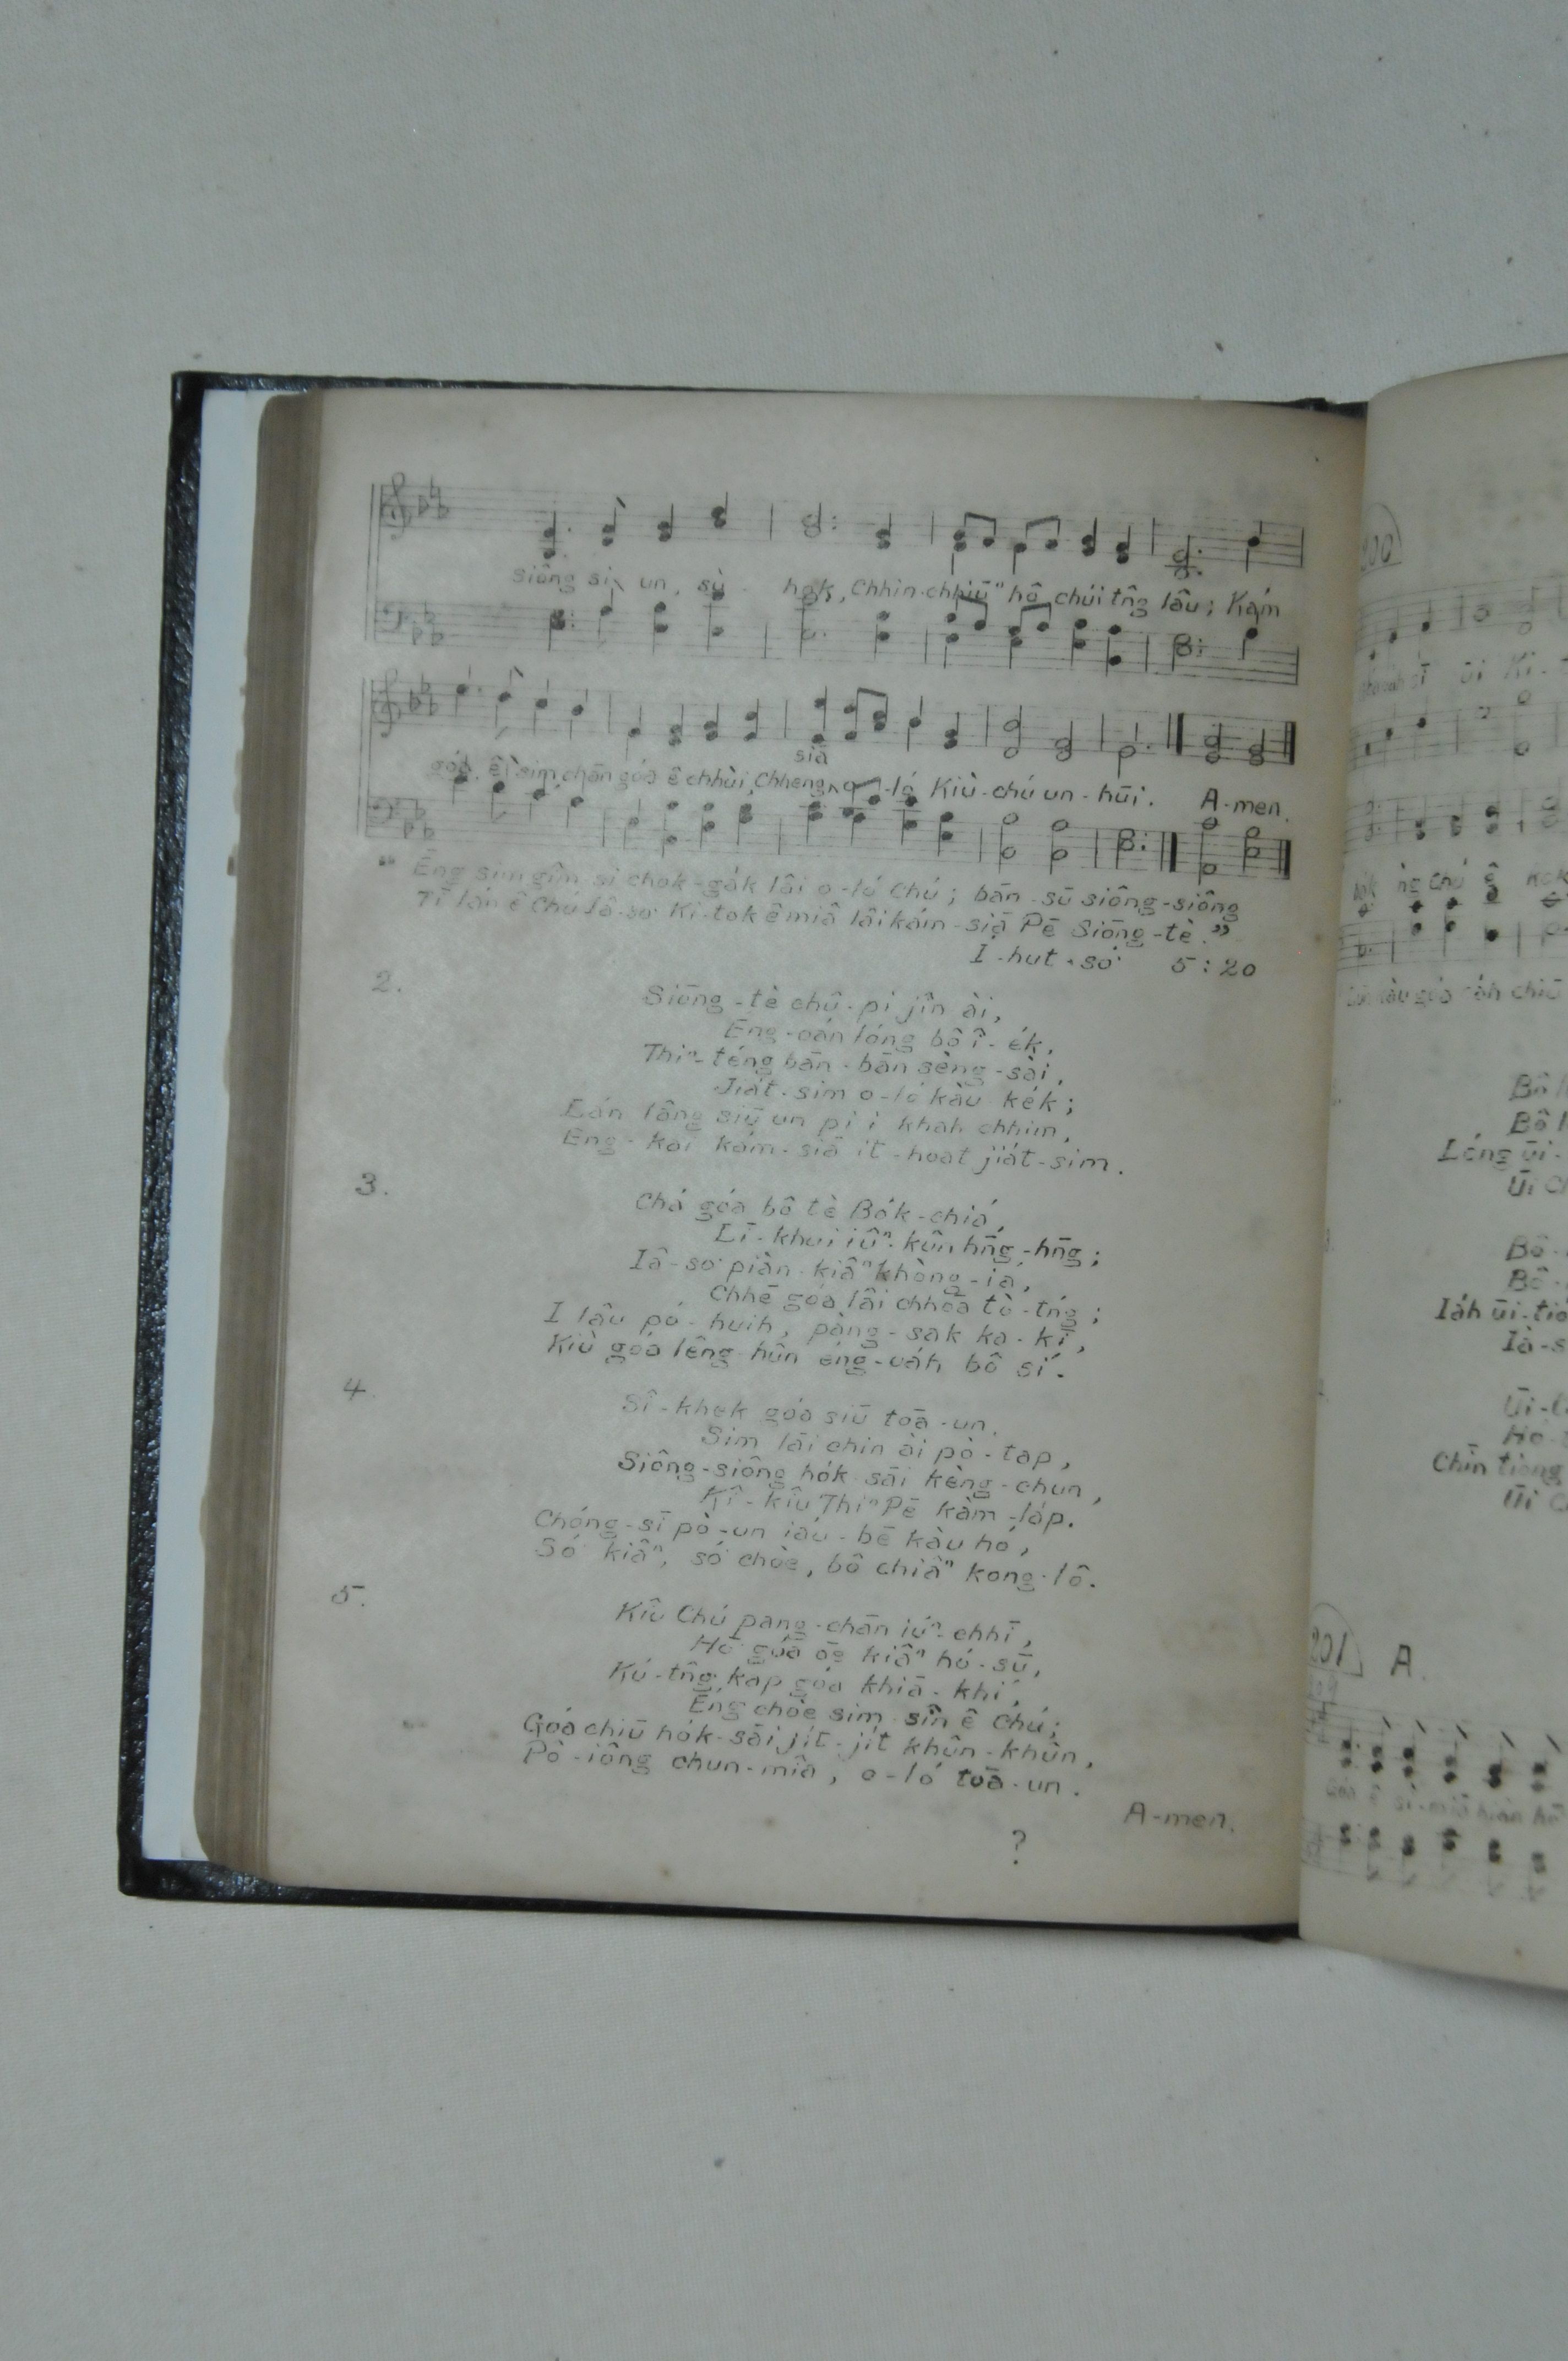 siông siū un, sù hok, Chhin-chhiūⁿ hô chúi tn̂g lâu; Kám
góa ê sim, chān góa ê chhùi, Chheng siā o-ló Kiù-chú un-hūi. A-men.
“Ēng sim gîm-si chok-ga̍k lâi o-ló Chú; bān-sū siông-siông
Tī lán ê Chú Iâ-so͘ Ki-tok ê miâ lâi kám-siā Pē Siōng-tè.”
Í-hut-só͘ 5:20
2.
Siōng-tè chû-pi jîn ài,
Éng-oán lóng bô î-e̍k,
Thiⁿ-téng bān-bān sèng-sài,
Jia̍t-sim o-ló kàu ke̍k;
Lán lâng siū un pi i khah chhim,
Eng-kai kám-siā it-hoat jia̍t-sim.
3.
Chá góa bô tè Bo̍k-chiá,
Lī-khui iûⁿ-kûn hn̄g-hn̄g;
Iâ-so͘ piàn-kiâⁿ khòng-iá,
Chhē góa lâi chhōa tò-tńg;
I lâu pó-huih, pàng-sak ka-kī,
Kiù góa lêng-hûn éng-oa̍h bô sí.
4.
Sî-khek góa siū toā-un,
Sim lāi chin ài pò-tap,
Siông-siông ho̍k-sāi kèng-chun,
Kî-kiû Thiⁿ Pē kàm-la̍p.
Chóng-sī pò-un iáu-bē kàu hó,
Só͘ kiâⁿ, só͘ chòe, bô chiâⁿ kong-lô.
5.
Kiû Chú pang-chān iúⁿ-chhī,
Hō͘ góa ōe kiâⁿ hó-sū,
Kú-tn̂g kap góa khiā-khí,
Éng chòe sim-sîn ê Chú;
Góa chiū ho̍k-sāi ji̍t-ji̍t khûn-khûn,
Pò-iông chun-miâ, o-ló toā-un.
A-men.
?
200
201 A.